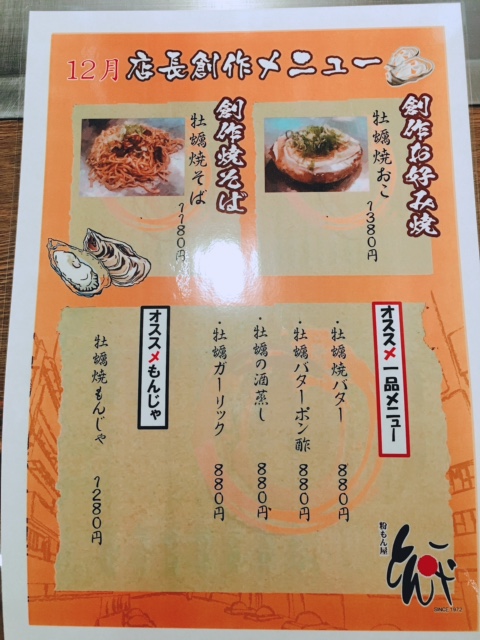 12月 店長創作メニュー
創作お好み焼
牡蠣焼おこ
1380円
創作焼そば
牡蠣焼そば
1180円
オススメ一品メニュー
・牡蠣焼バター 880円
・牡蠣バターポン酢 880円
・牡蠣の酒蒸し 880円
・牡蠣ガーリック 880円
オススメもんじゃ
牡蠣焼もんじゃ 1280円
粉もん屋
とん平
SINCE 1972